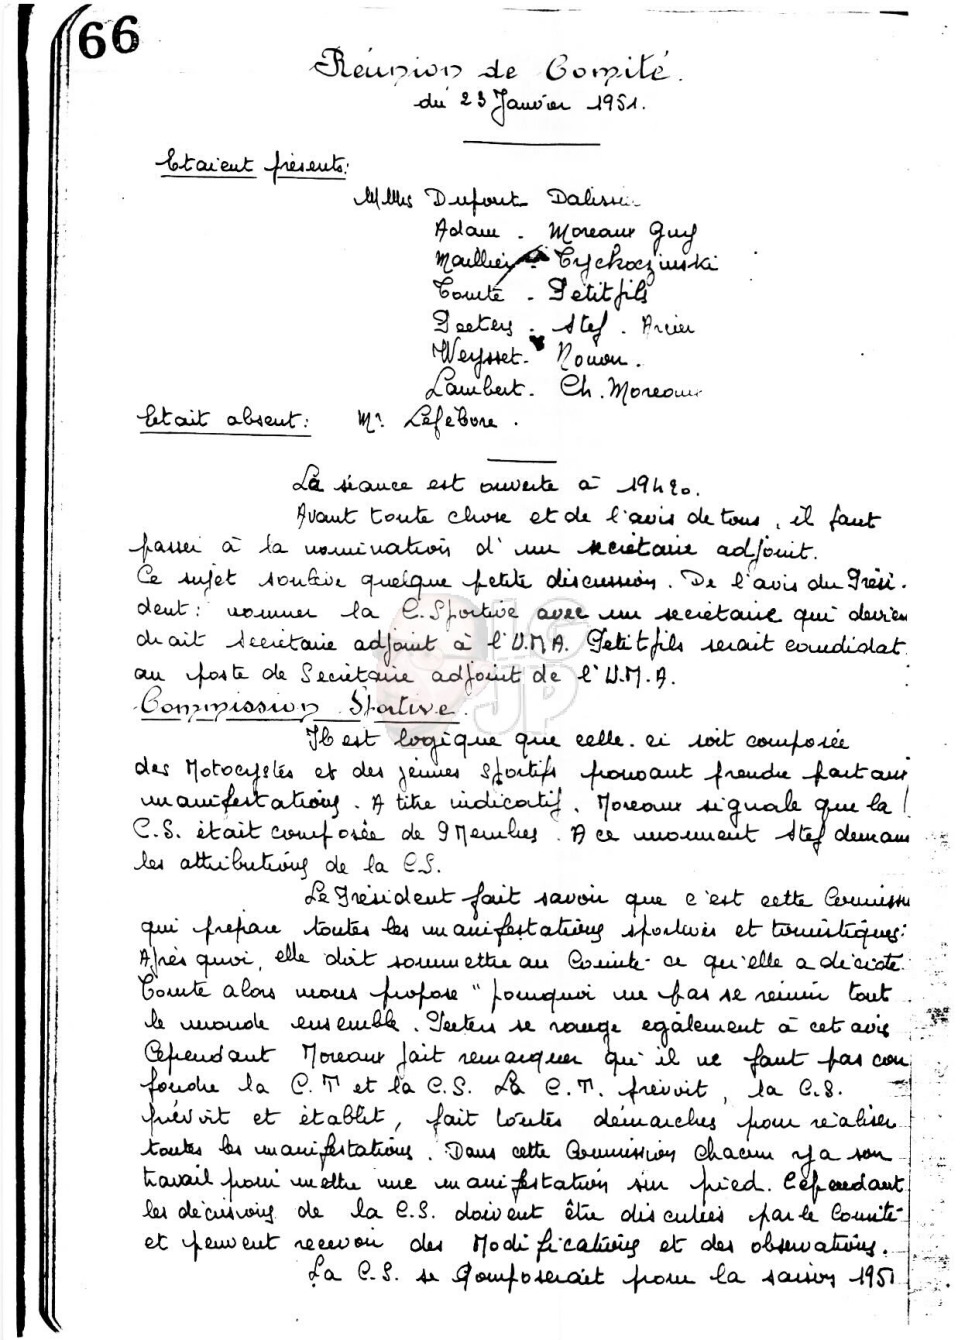 66
Réunion de Comité.
du 23 Janvier 1951.
Etaient présents:
MMrs Dupont Dalissi
Adam - Moreaux Guy
Maillier - Tychoczinski
Comte - Petitfils
Peeters - Stef - Arcier
Weysset - Nouon.
Lambert - Ch. Moreaux
Etait absent: Mr. Lefèbvre.
La séance est ouverte à 19h20.
Avant toute chose et de l'avis de tous, il faut
passer à la nomination d'un secrétaire adjoint.
Ce sujet soulève quelque petite discussion. De l'avis du Prési-
dent: nommer la C. Sportive avec un secrétaire qui devien
drait secrétaire adjoint à l'U.M.A. Petitfils serait candidat
au poste de Secrétaire adjoint de l'U.M.A.
Commission Sportive.
Il est logique que celle-ci soit composée
des Motocyclistes et des jeunes sportifs pouvant prendre part aux
manifestations. A titre indicatif, Moreaux signale que la
C.S. était composée de 9 Membres. A ce moment Stef deman
les attributions de la C.S.
Le Président fait savoir que c'est cette Commiss
qui prépare toutes les manifestations sportives et touristiques:
Après quoi, elle doit soumettre au Comité ce qu'elle a décidé.
Comte alors nous propose "pourquoi ne pas se réunir tout
le monde ensemble. Peeters se range également à cet avis
Cependant Moreaux fait remarquer qu'il ne faut pas con
fondre la C.T et la C.S. La C.T. prévoit, la C.S.
prévoit et établit, fait toutes démarches pour réaliser
toutes les manifestations. Dans cette Commission Chacun y a son
travail pour mettre une manifestation sur pied. Cependant
les décisions de la C.S. doivent être discutées par le Comité
et peuvent recevoir des Modifications et des observations.
La C.S. se Composerait pour la saison 1951